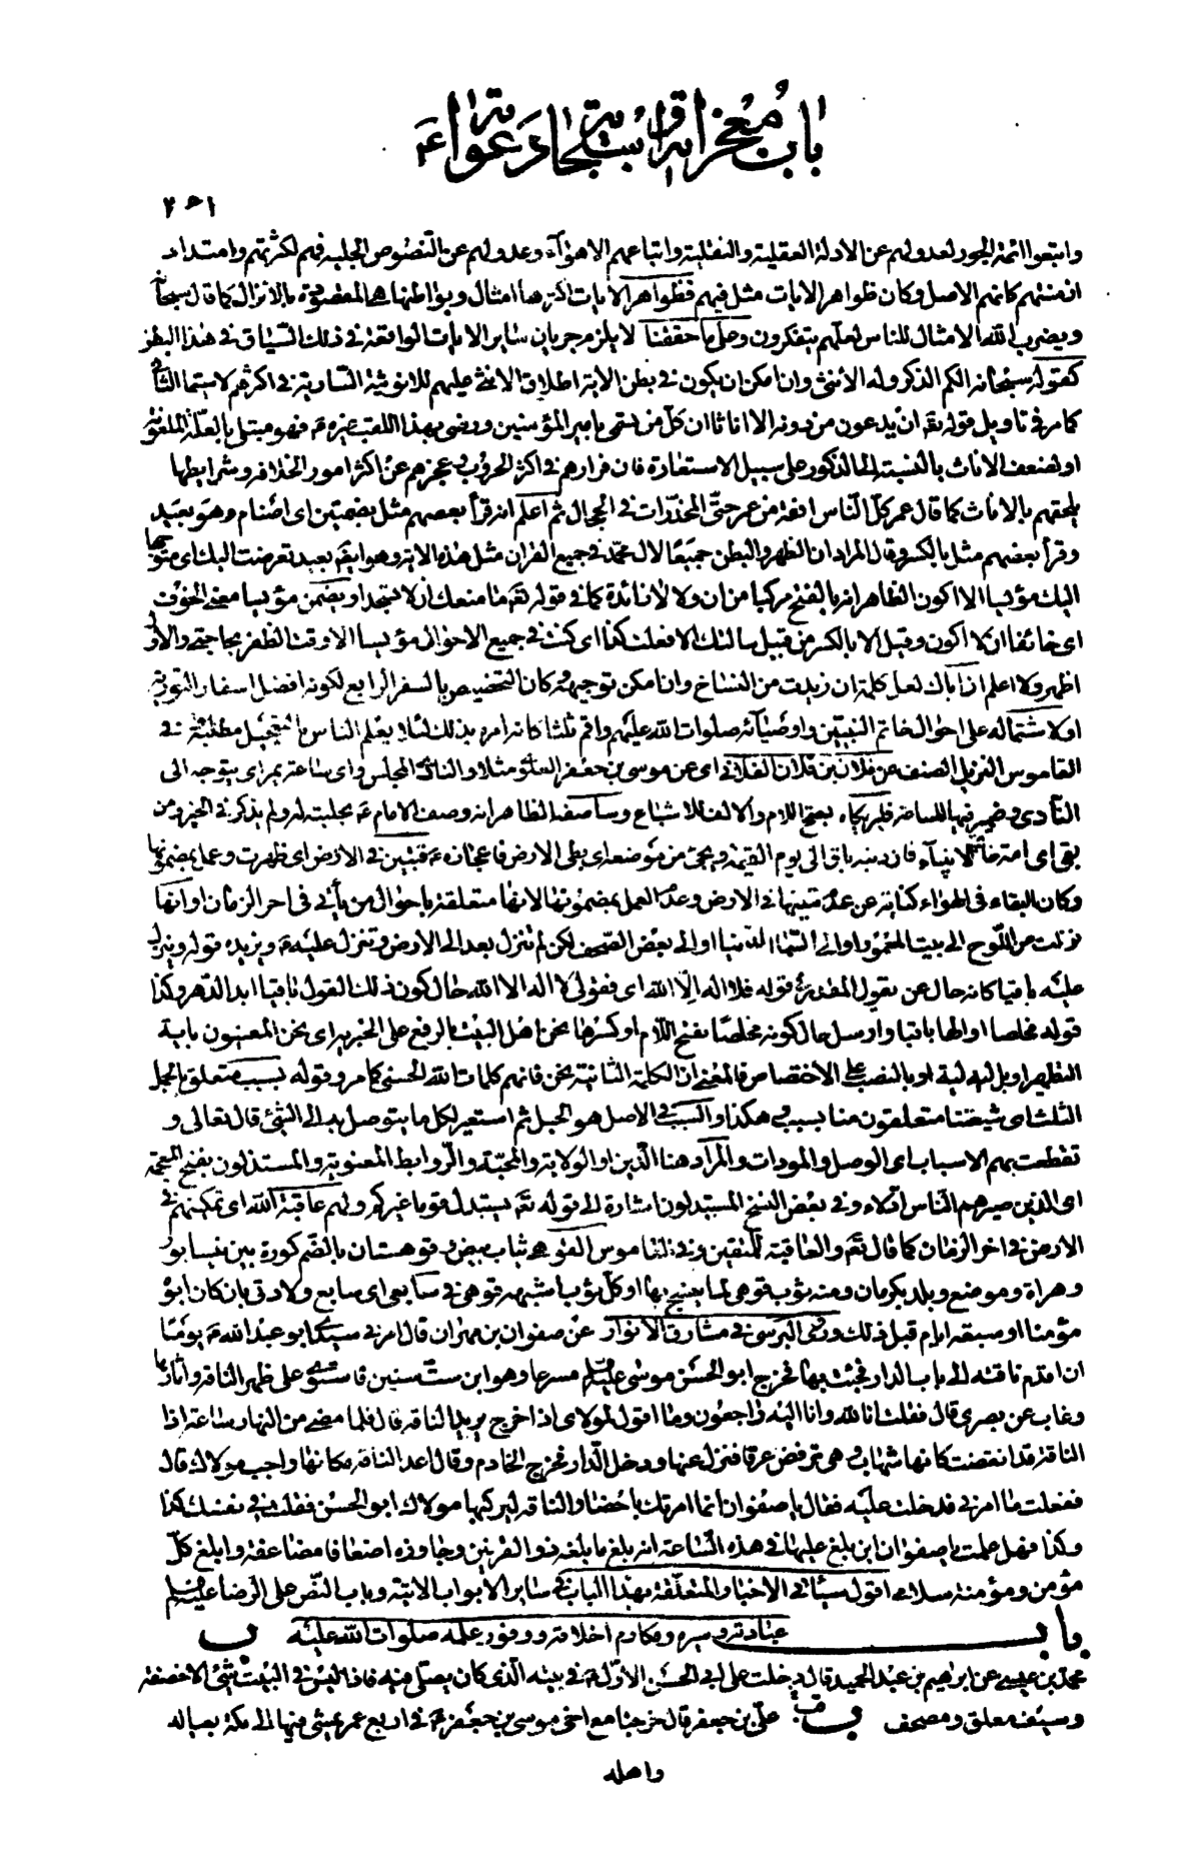 باب معجزاته واستجابة دعواته ع
۲۵۱
واتبعوا ائمة الجور لعدولهم عن الادلة العقلية والنقلية واتباعهم الاهواء وعدولهم عن النصوص الجلية فهم لكثرتهم وامتداد
ازمنتهم كانهم الاصل وكان ظواهر الايات مثل فيهم فظواهر الايات اكثرها امثال وبواطنها هى المقصودة بالانزال كما قال سبحانه
ويضرب الله الامثال للناس لعلهم يتفكرون وعلى ما حققنا لا يلزم جريان ساير الايات الواقعة فى ذلك السياق فى هذا البطن
كقوله سبحانه الكم الذكر وله الانثى وان امكن ان يكون فى بطن الاية اطلاق الانثى عليهم للانوثية السارية فى اكثرهم لاسيما الثانى
كما مر فى تاويل قوله تعه ان يدعون من دونه الا اناثا ان كل من تسمى بامير المؤمنين ورضى بهذا اللقب غيره ع فهو مبتلى بالعلة الملعونة
او لضعف الاناث بالنسبة الى الذكور على سبيل الاستعارة فان فرارهم فى اكثر الحروب وعجزهم عن اكثر امور الخلافة وشرايطها
يلحقهم بالاناث كما قال عمر كل الناس افقه من عمر حتى المخدرات فى الحجال ثم اعلم انه قرأ بعضهم مثل بضمتين اى اصنام وهو بعيد
وقرأ بعضهم مثل بالكسر وقال المراد ان الظهر والبطن جميعا لال محمد فى جميع القران مثل هذه الاية وهو ايضا بعيد تعرضت اليك اى متوجها
اليك مؤيسا الا اكون الظاهر انه بالفتح مركبا من ان ولا ولا زائدة كما فى قوله تعه ما منعك ان لا تسجد او يضمن مؤيسا معنى الخوف
اى خائفا ان لا اكون وقيل الا بالكسر من قبيل سالتك الا فعلت كذا اى كنت فى جميع الاحوال مؤيسا الا وقت الظفر بحاجتى والاول
اظهر ولا اعلم ان اباك لعل كلمة ان زيدت من النساخ وان امكن توجيهه وكان التخصيص بالسفر الرابع لكونه افضل اسفار التورية
او لاشتماله على احوال خاتم النبيين واوصيائه صلوات الله عليهم واقم ثلثا كانه امره بذلك لئلا يعلم الناس بالتعجيل مطلبه فى
القاموس النزيل الضيف عن فلان بن فلان الفلانى اى عن موسى بن جعفر العلوى مثلا والنادى المجلس واى ساعة يمر اى يتوجه الى
النادى وضمير فيها للساعة فلربجاء بفتح اللام والالف للاشباع وساصف الظاهر انه وصف الامام ع بحليته له ولم يذكر فى الخبر ومن
بقى اى امة خاتم الانبياء فان دينه باق الى يوم القيمة ويجئ من موضعه اى بطى الارض فاعجازه ع قبلين فى الارض اى ظهرت وعمل بمضمونها
وكان البقاء فى الهواء كناية عن عدم تبينها فى الارض وعدم العمل بمضمونها لانها متعلقة باحوال من ياتى فى اخر الزمان او انها
نزلت من اللوح الى بيت المعمور او الى السماء الدنيا او الى بعض الصحف لكن لم تنزل بعد الى الارض وتنزل عليه ع ويزيده قوله وينزل
عليه باقيا كانه حال عن بقول المقدر فى قوله فلا اله الا الله اى فقولى لا اله الا الله حال كون ذلك القول باقيا ابد الدهر وكذا
قوله مخلصا او الها باقيا وارسل حال كونه مخلصا بفتح اللام او كسرها نحن اهل البيت بالرفع على الخبرية اى نحن المعنيون باية
التطهير او بالبدلية او بالنصب على الاختصاص فالمعنى ان الكلمة الثانية نحن فانهم كلمات الله الحسنى كما مر وقوله بسبب متعلق بالجمل
الثلث اى شيعتنا متعلقون منا بسبب وهكذا والسبب فى الاصل هو الحبل ثم استعير لكل ما يتوصل به الى الشئ قال تعالى و
تقطعت بهم الاسباب اى الوصل والمودات والمراد هنا الدين او الولاية والمحبة والروابط المعنوية والمستذلون بفتح المعجمة
اى الذين صيرهم الناس اذلاء وفى بعض النسخ المستبدلون اشارة الى قوله تعه يستبدل قوما غيركم ولهم عاقبة الله اى تمكينهم فى
الارض فى اخر الزمان كما قال تعه والعاقبة للمتقين وفى القاموس القوهى ثياب بيض وقوهستان بالضم كورة بين نيسابور
وهراة وموضع وبلد بكرمان ومنه ثوب قوهى لما ينسج بها او كل ثوب اشبهه قوهى فى سابعى اى سابع ولادتى بان كان ابوه
مؤمنا او سبعة ايام قبل ذلك وروى البرسى فى مشارق الانوار عن صفوان بن مهران قال امرنى سيدى ابو عبد الله ع يوما
ان اقدم ناقته الى باب الدار فجئت بها فخرج ابو الحسن موسى عليه السلم مسرعا وهو ابن ست سنين فاستوى على ظهر الناقة واثارها
وغاب عن بصرى قال فقلت انا لله وانا اليه راجعون وما اقول لمولاى اذا خرج يريد الناقة قال فلما مضى من النهار ساعة اذا
الناقة قد انقضت كانها شهاب وهى ترفض عرقا فنزل عنها ودخل الدار فخرج الخادم وقال اعد الناقة مكانها واجب مولاك قال
ففعلت ما امرنى فدخلت عليه فقال يا صفوان انما امرتك باحضار الناقة ليركبها مولاك ابو الحسن فقلت فى نفسك كذا
وكذا فهل علمت يا صفوان اين بلغ عليها فى هذه الساعة انه بلغ ما بلغه ذو القرنين وجاوزه اضعافا مضاعفة وابلغ كل
مؤمن ومؤمنة سلامى اقول سيأتى الاخبار المتعلقة بهذا الباب فى ساير الابواب الاتية وباب النص على الرضا عليه السلم
باب عبادته وسيره ومكارم اخلاقه ووفور علمه صلوات الله عليه ب
محمد بن عيسى عن ابراهيم بن عبد الحميد قال دخلت على ابى الحسن الاول ع فى بيته الذى كان يصلى فيه فاذا ليس فى البيت شئ الا خصفة
وسيف معلق ومصحف ب على بن جعفر قال خرجنا مع اخى موسى بن جعفر ع فى اربع عمر يمشى فيها الى مكة بعياله
واهله